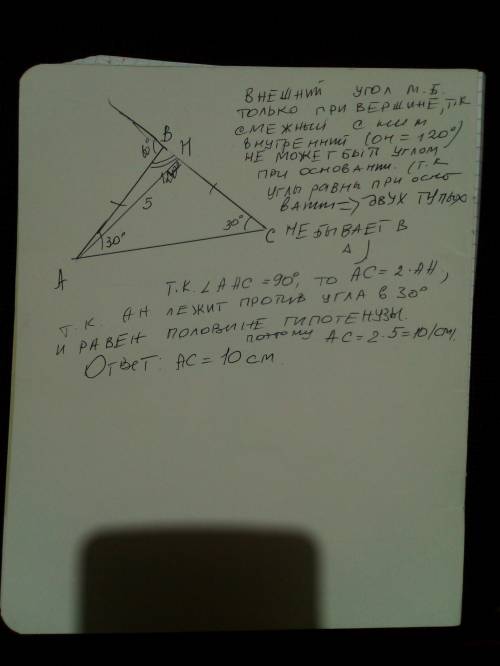 ВНЕШНИЙ УГОЛ М.Б.
ТОЛЬКО ПРИ ВЕРШИНЕ, Т.К
СМЕЖНЫЙ С НИМ
ВНУТРЕННИЙ (ОН = 120°)
НЕ МОЖЕТ БЫТ УГЛОМ
ПРИ ОСНОВАНИИ. (Т.К
УГЛЫ РАВНЫ ПРИ ОСНО
ВАНИИ => ДВУХ ТУПЫХ
НЕ БЫВАЕТ В
Δ)
B
H
60°
120°
5
30°
30°
C
A
Т.К. ∠AHC = 90°, ТО AC = 2·AH,
Т.К. AH ЛЕЖИТ ПРОТИВ УГЛА В 30°
И РАВЕН ПОЛОВИНЕ ГИПОТЕНУЗЫ.
поэтому AC = 2·5 = 10 (см).
Ответ: AC = 10 см.